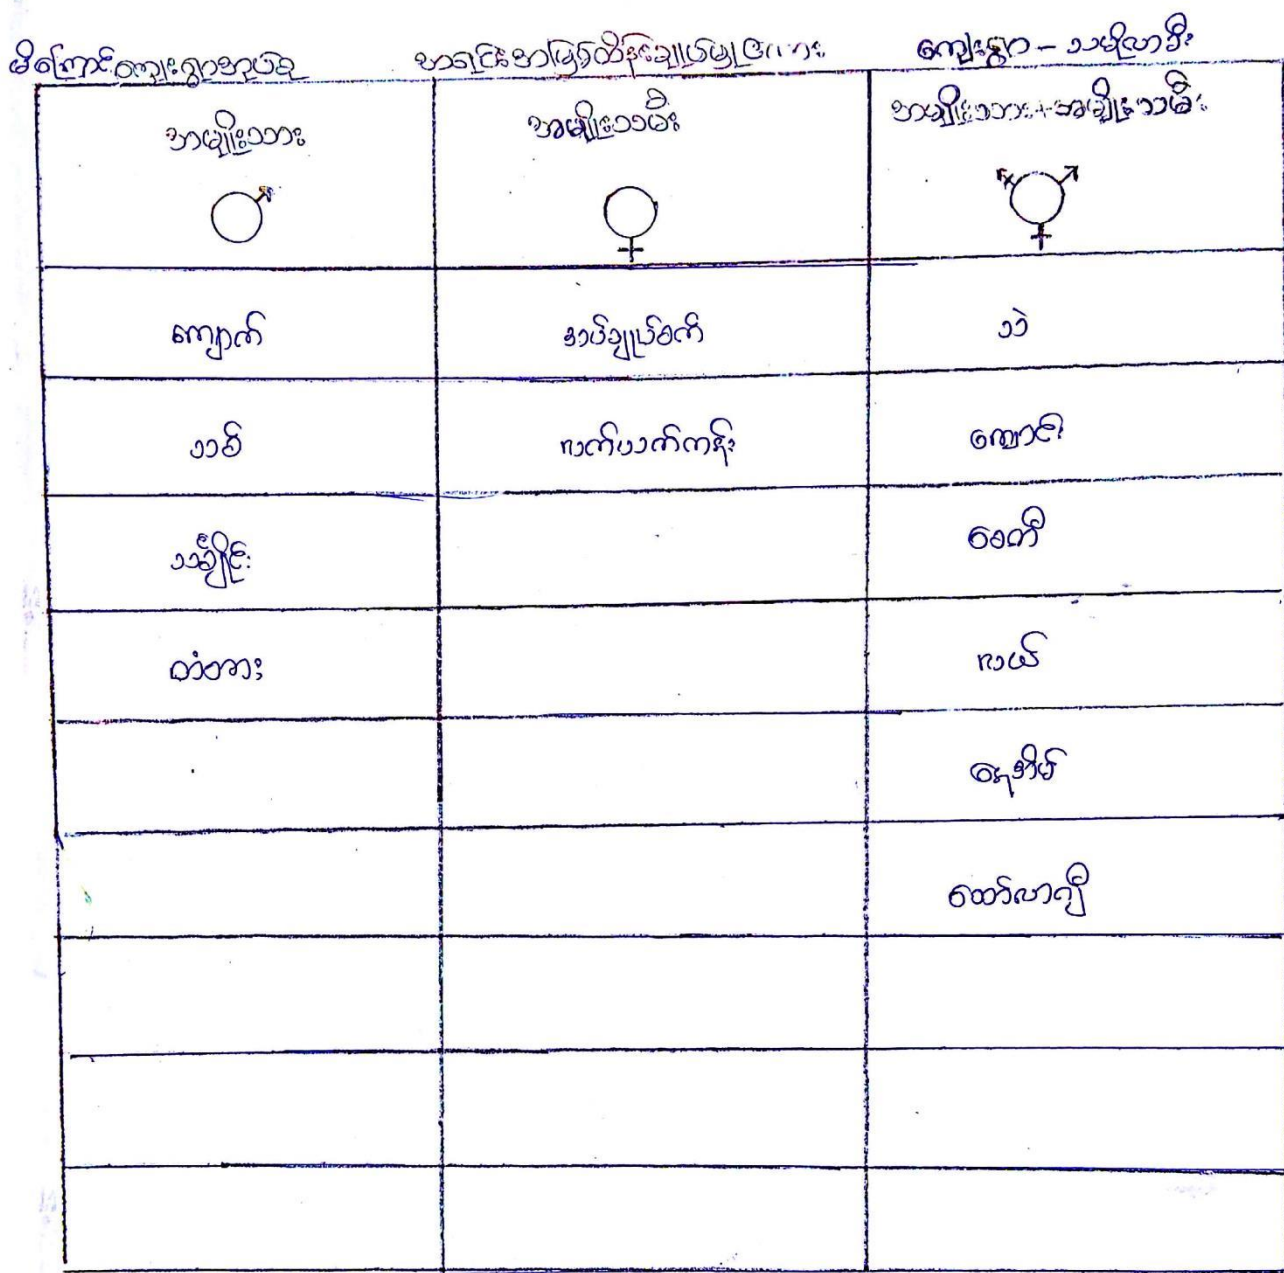 မိကြောင်းကျေးရွာအုပ်စု အရင်းအမြစ်ထိန်းချုပ်မှုဇယား ကျေးရွာ - သမိုလာဒီး
အမျိုးသား အမျိုးသမီး အမျိုးသား+အမျိုးသမီး
ကျောက် အပ်ချုပ်စက် သဲ
သစ် လက်ယက်ကန်း ကျောင်း
သင်္ချိုင်း စေတီ
တံတား လယ်
နေအိမ်
ထော်လာဂျီ